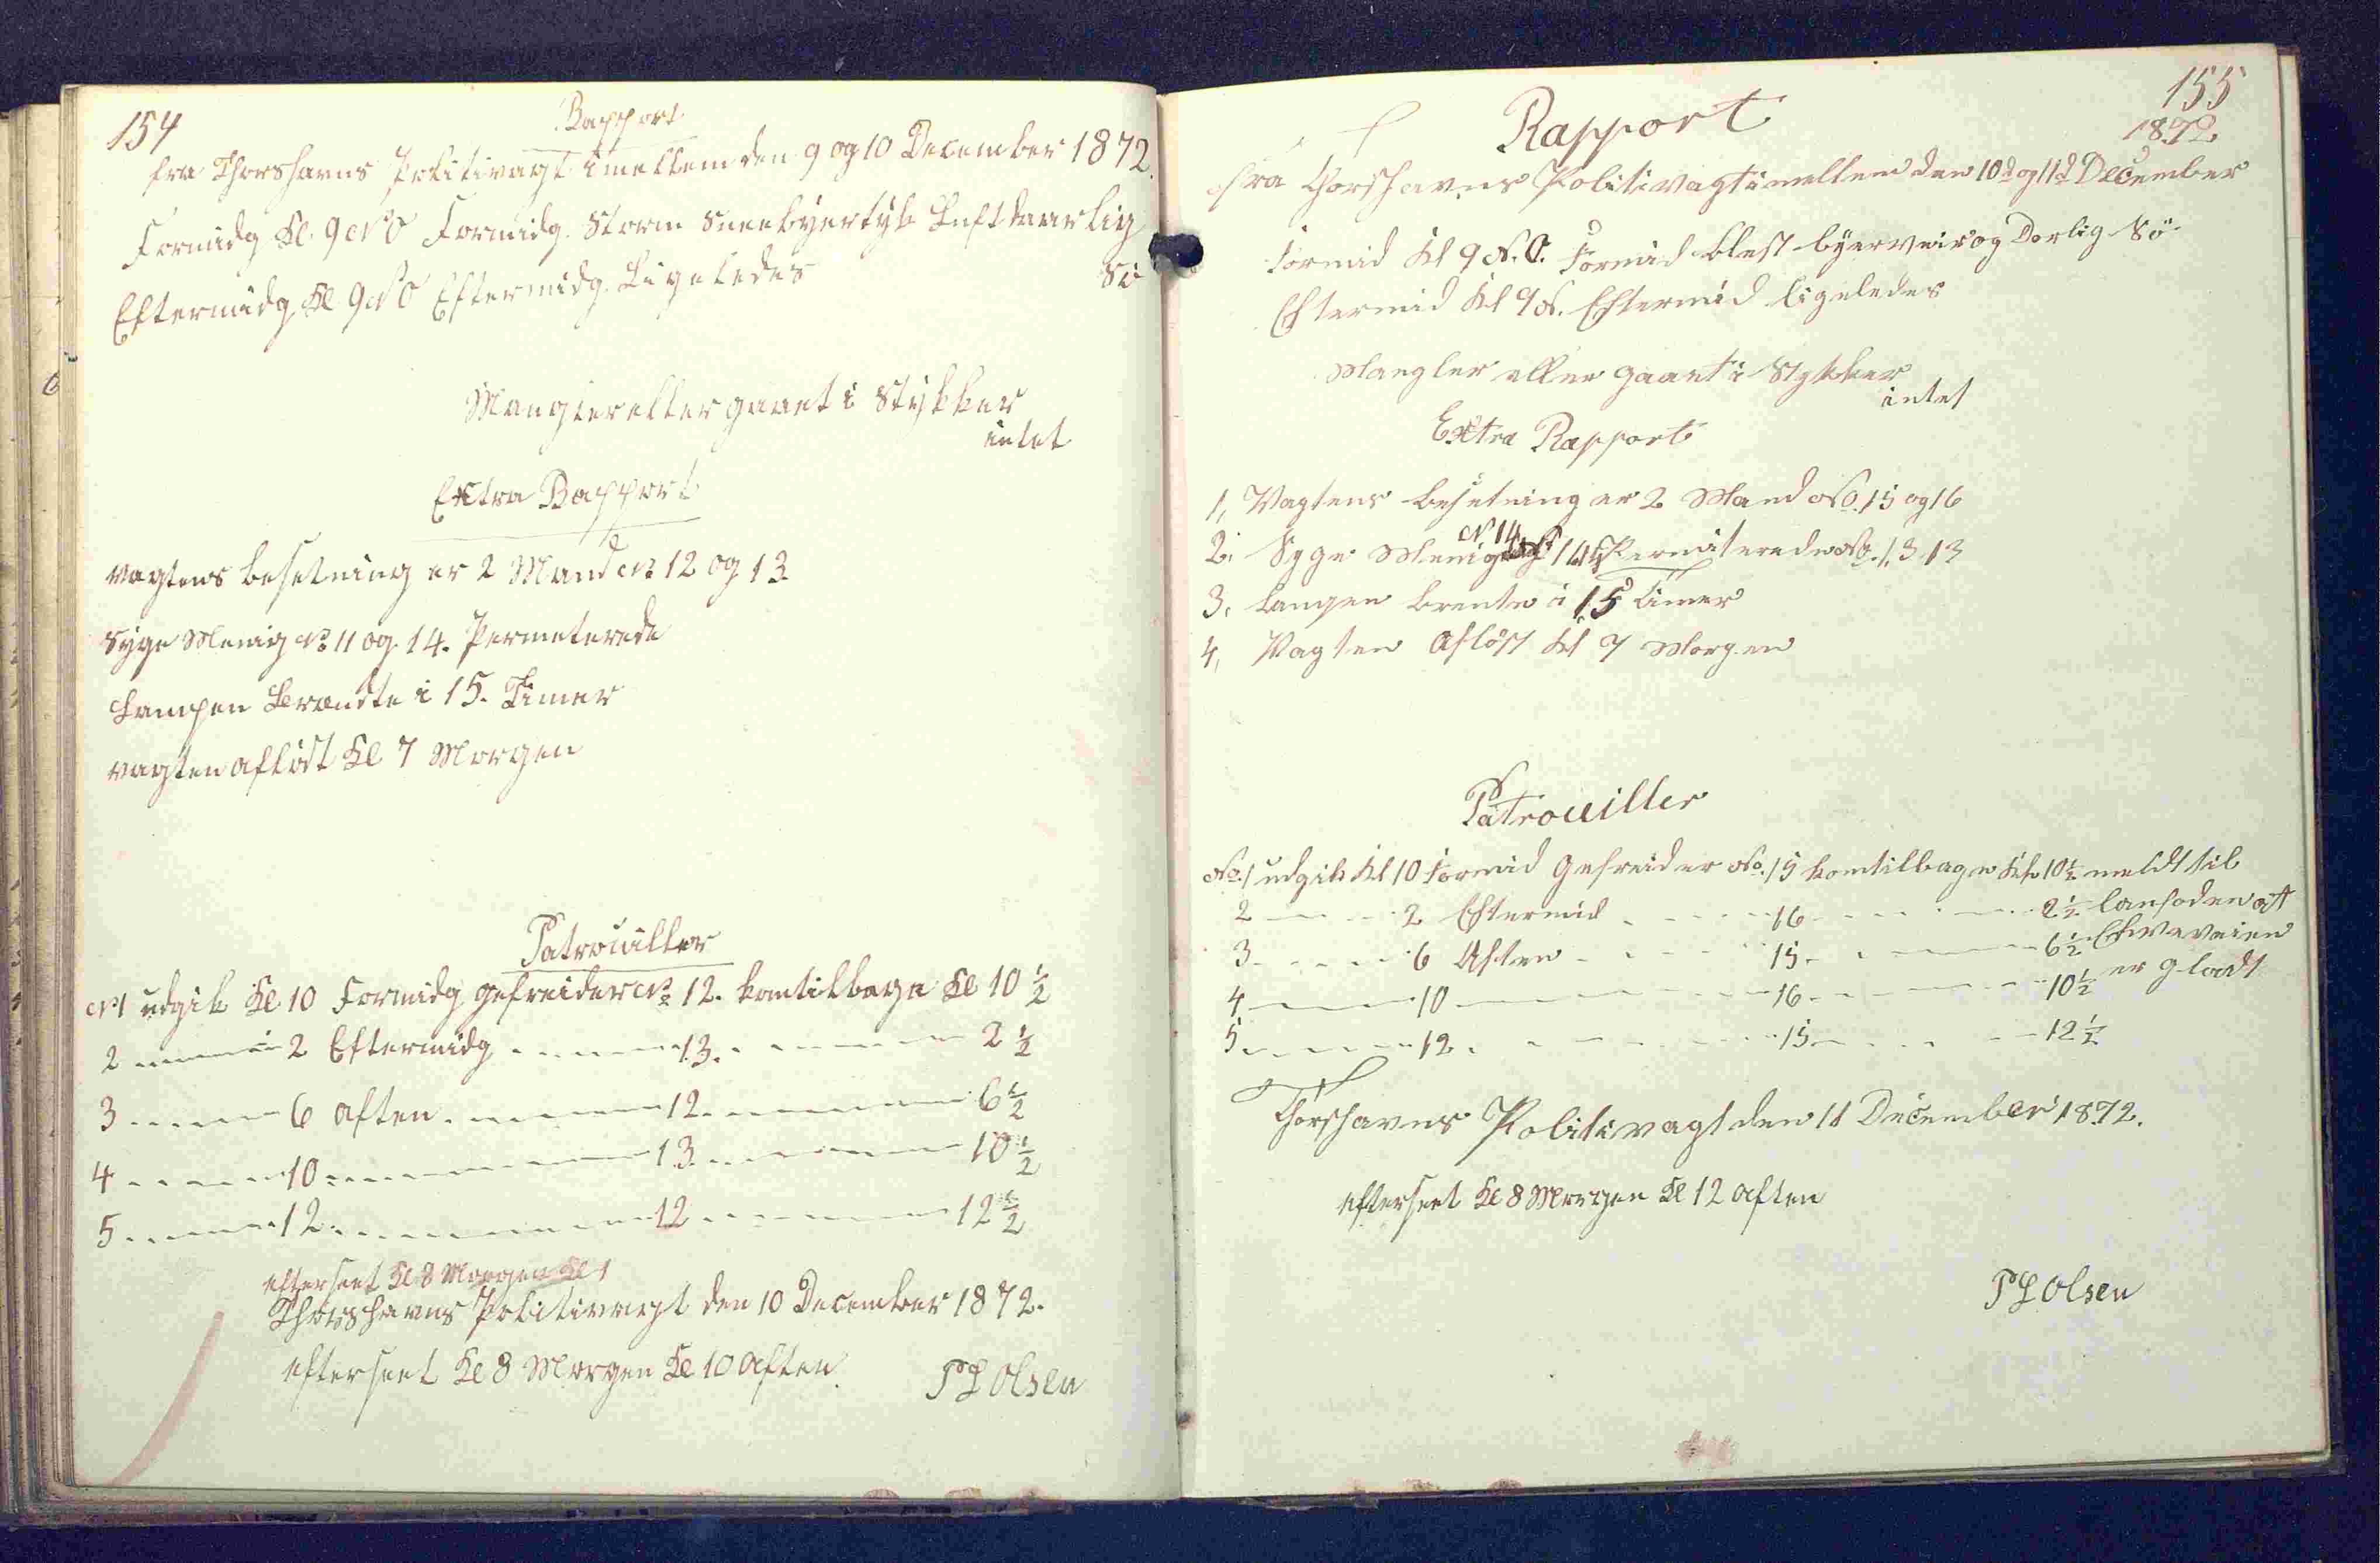 154
Rapport
fra Thorshavns Politivagt imellem den 9 og 10 December 1872.
Formidg Kl. 9 NO Formidg. Storm Sneebyertyk Luft daarlig
Sö
Eftermidg Kl 9 NO Eftermidg. Ligeledes
Mangler eller gaaet i Stykker
intet
Extra Rapport
vagtens besetning er 2 Mand No 12 og 13
Syge Menig No 11 og 14. Permeterede
Lampen Brændte i 15. Timer
vagten aflöst Kl 7 Morgen
Patrouiller
No 1 udgik Kl 10 Formidg gefreider No 12. komtilbage Kl 10 1/2
2 - - - 2 Eftermidg - - - 13. - - - 2 1/2
3 - - - 6 aften - - - 12 - - - 6 1/2
4 - - - 10 - - - 13 - - - 10 1/2
5 - - - 12 - - - 12 - - - 12 1/2
efterseet Kl 8 Morgen Kl 1
Thorshavns Politivagt den 10 December 1872.
efterseet Kl 8 Morgen Kl 10 aften
P L Olsen
155
Rapport
1872
fra Thorshavns Politivagt imellem den 10d og 11d December
Formid Kl 9 N.O. Formid blest byerveir og Dorlig Sö
Eftermid Kl 9 N. Eftermid ligeledes
Mangler eller gaaet i Stykker
intet
Extra Rapport
1, Vagtens besetning er 2 Mand No. 15 og 16
N 14
2. Syge Menig Permiterede No. 1. 3. 13
3, Lampen brente i 15 timer
4, Vagten Aflöst Kl 7 Morgen
Patrouiller
No. 1 udgik Kl 10 Formid Gefreider No. 15 komtilbage Kl. 10 1/2 meldt til
2 - - - 2 Eftermid - - - 16 - - - 2 1/2 lanfoden at
3 - - - 6 Aften - - - 15 - - - 6 1/2
4 - - - 10 - - - 16 - - - 10 1/2 er gladt
5 - - - 12 - - - 15 - - - 12 1/2
Thorshavns Politivagt den 11 December 1872.
efterseet Kl 8 Morgen Kl 12 aften
P L Olsen